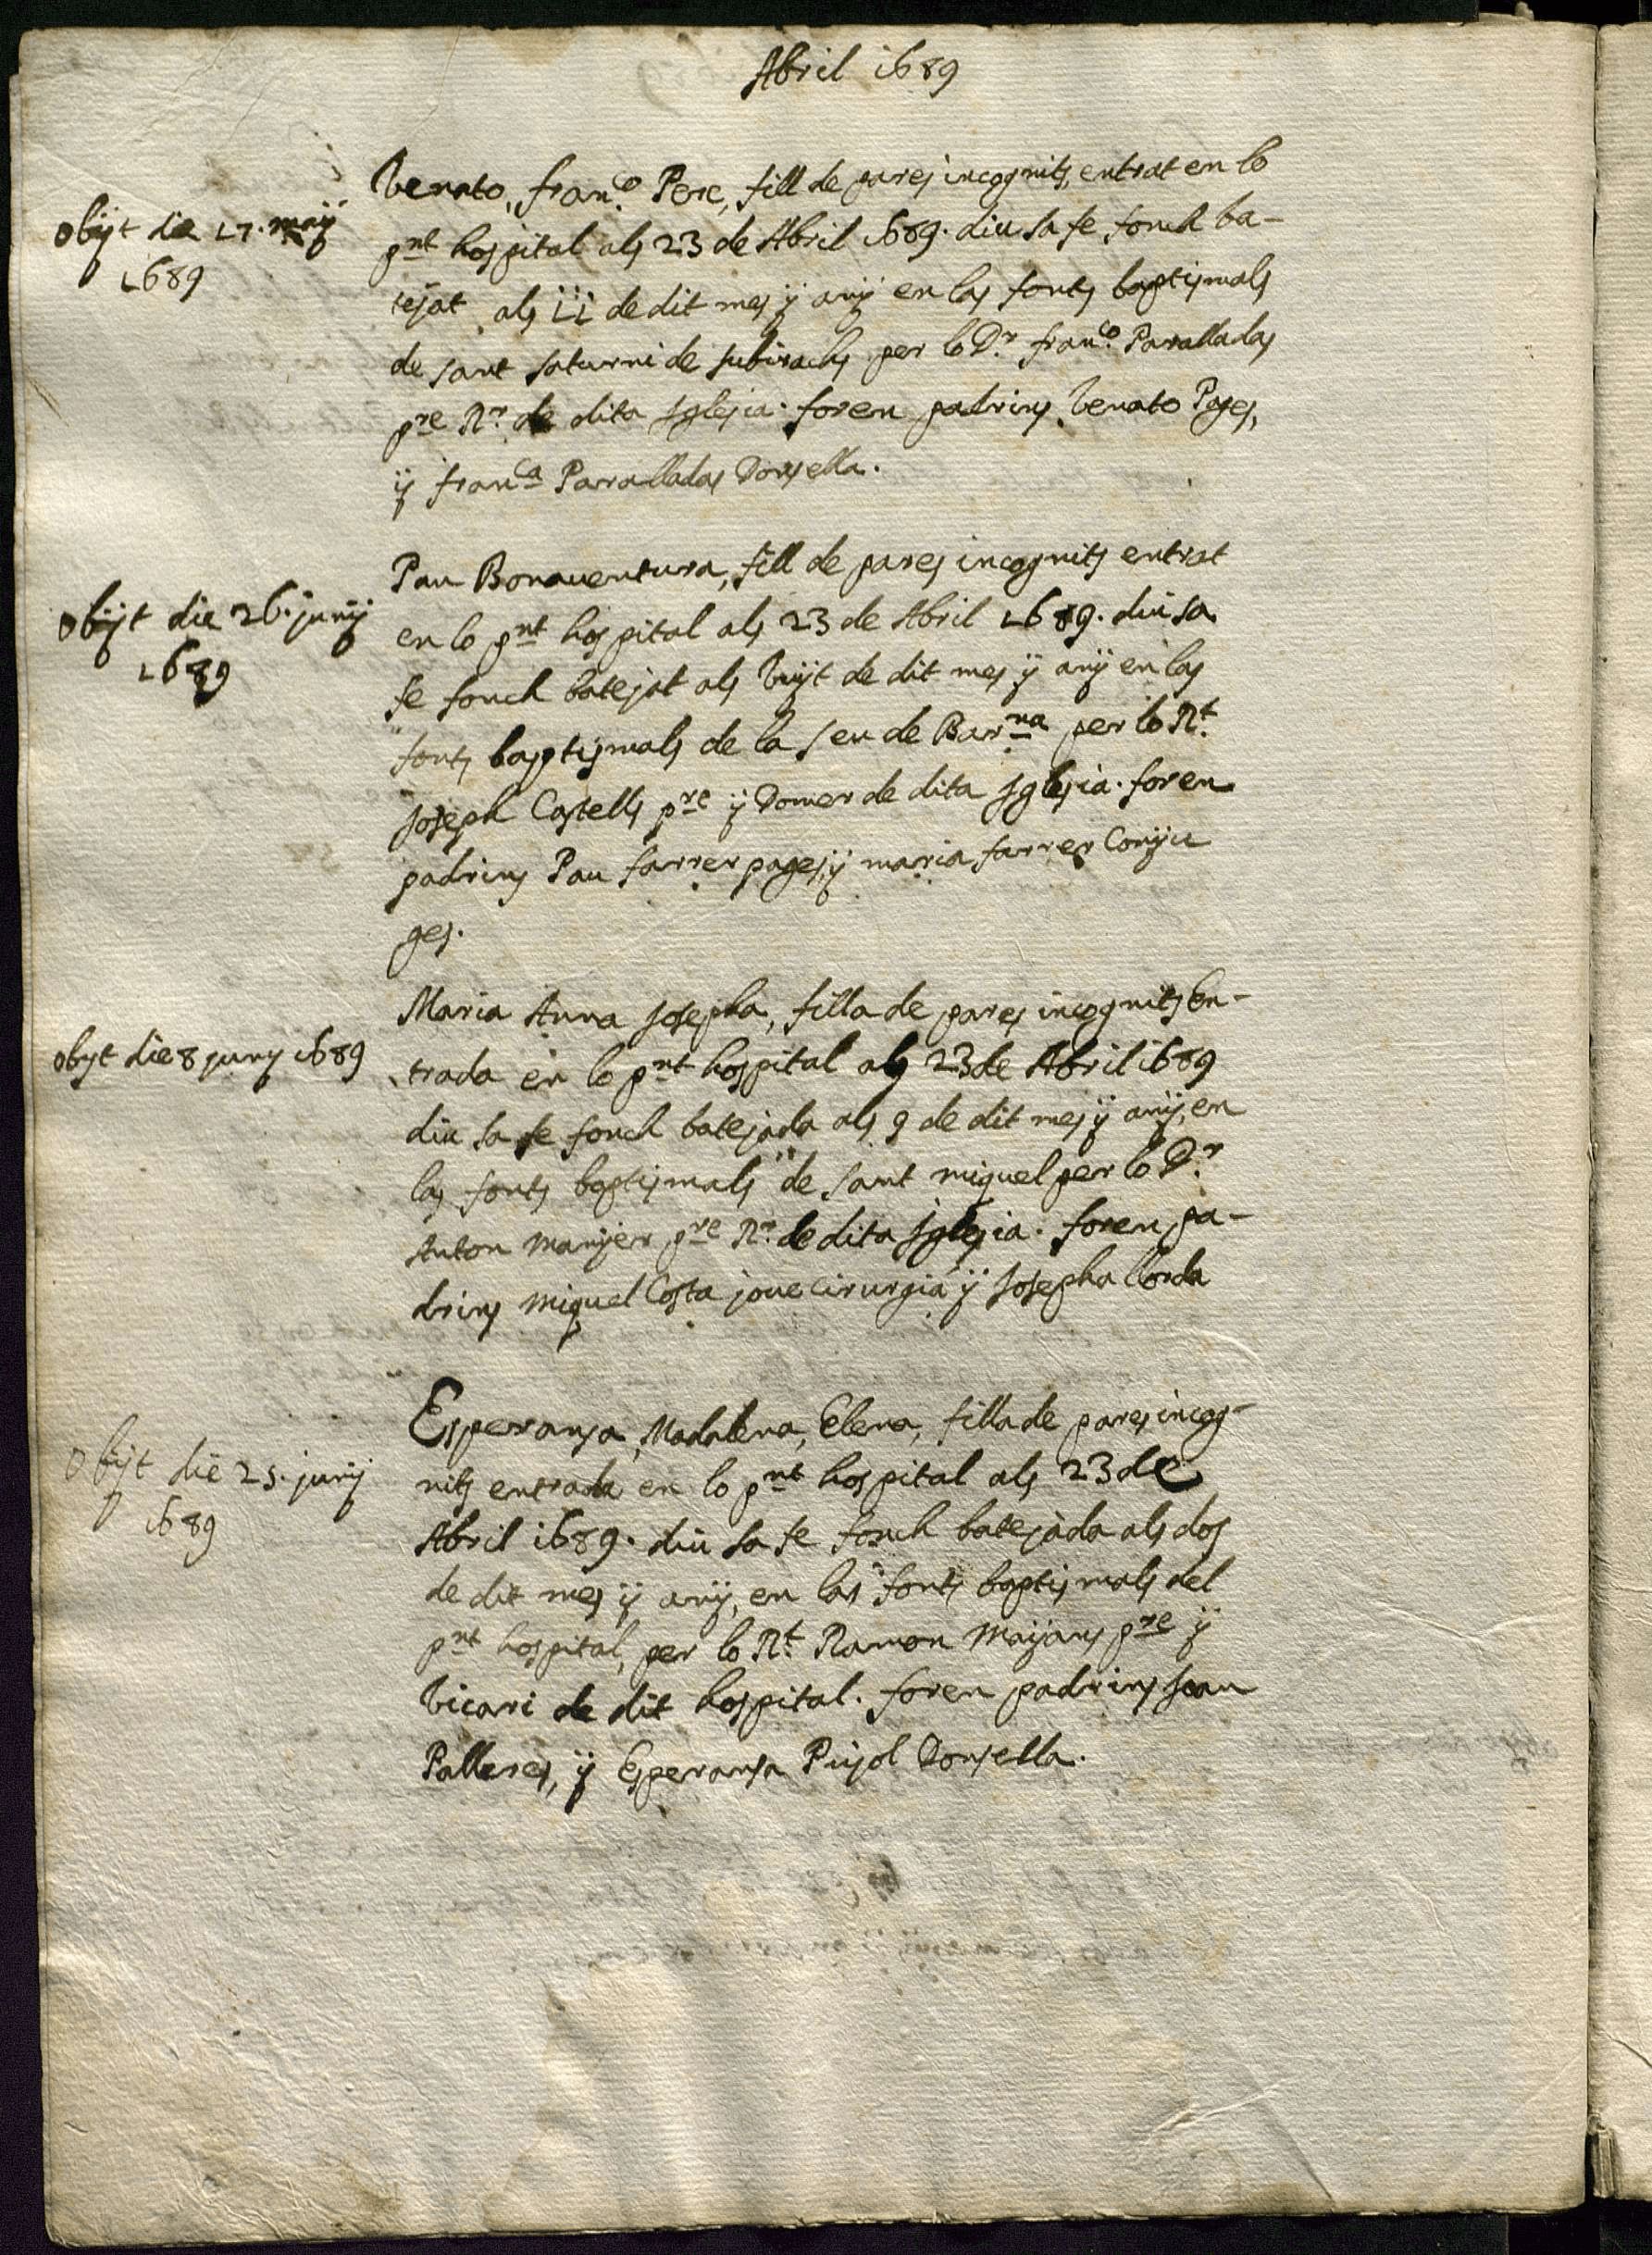 Abril 1689
Obijt die 17. maij
1689
Venato, fran.co Pere, fill de pares incognits, entrat en lo
pnt hospital als 23 de Abril 1689. diu sa fe, fonch ba-
tejat als 11 de dit mes ÿ anÿ en las fonts baptismals
de sant saturni de subirachs per lo Dr. fran.co Paralladas
pre Rr. de dita Iglesia. foren padrins Venato Pages,
ÿ fran.ca Paralladas Donsella.
Obijt die 26. junij
1689
Pau Bonaventura, fill de pares incognits entrat
en lo pnt hospital als 23 de Abril 1689. diu sa
fe fonch batejat als Vuÿt de dit mes ÿ anÿ en las
fonts baptismals de la seu de Barna per lo Rt.
Joseph Castells pre ÿ Domer de dita Iglesia. foren
padrins Pau farrer pages, ÿ maria farrer Conju
ges.
obijt die 8 junij 1689
Maria Anna Josepha, filla de pares incognits En-
trada en lo pnt hospital als 23 de Abril 1689
diu sa fe fonch batejada als 9 de dit mes ÿ anÿ, en
las fonts baptismals de sant miquel per lo Dr.
Anton manÿer pre Rr. de dita Iglesia. foren pa-
drins miquel Costa jove cirurgia ÿ Josepha Llorda
Obijt die 25. junij
1689
Esperansa, Madalena, Elena, filla de pares incog-
nits entrada en lo pnt hospital als 23 de
Abril 1689. diu sa fe fonch batejada als dos
de dit mes ÿ anÿ, en las fonts baptismals del
pnt hospital, per lo Rt. Ramon Maijans pre ÿ
Vicari de dit hospital. foren padrins Joan
Palleres, ÿ Esperansa Pujol Donsella.